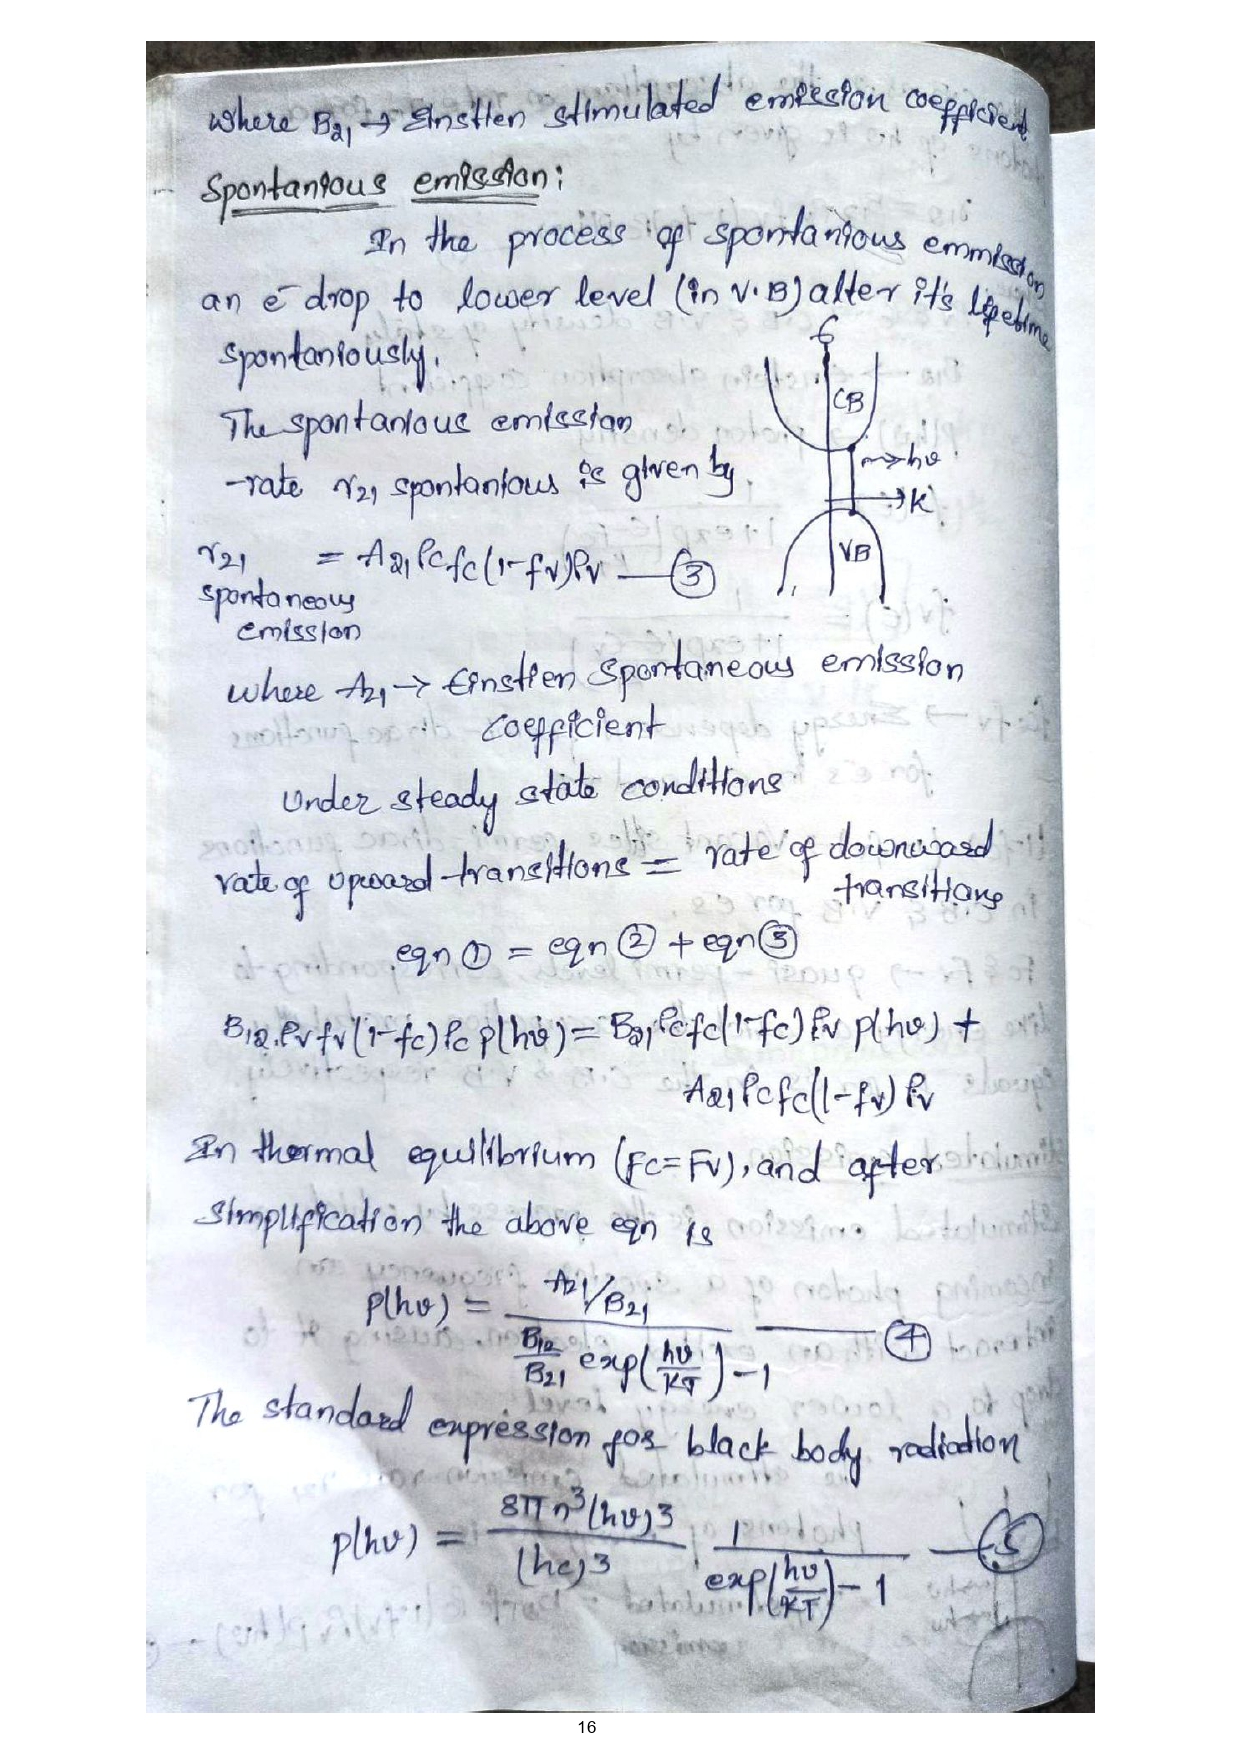 where B21 → Einstien stimulated emission coefficient
Spontanious emission:
In the process of spontanious emmission
an e⁻ drop to lower level (in V.B) alter it's lifetime
spontaniously.
E
CB
The spontanious emission
hν
rate r21 spontanious is given by
K
r21 = A21 ρc fc (1-fv) ρv — ③
VB
spontaneous
emission
where A21 → Einstien Spontaneous emission
coefficient
Under steady state conditions
rate of upward transitions = rate of downward
transitions
eqn ① = eqn ② + eqn ③
B12 ρv fv (1-fc) ρc p(hν) = B21 ρc fc (1-fc) ρv p(hν) +
A21 ρc fc (1-fv) ρv
In thermal equilibrium (Fc = Fv), and after
simplification the above eqn is
p(hν) = A21/B21 / B12/B21 exp(hν/KT) - 1 — ④
The standard expression for black body radiation
p(hν) = 8πn³(hν)3 / (hc)3 1 / exp(hν/KT) - 1 — ⑤
16